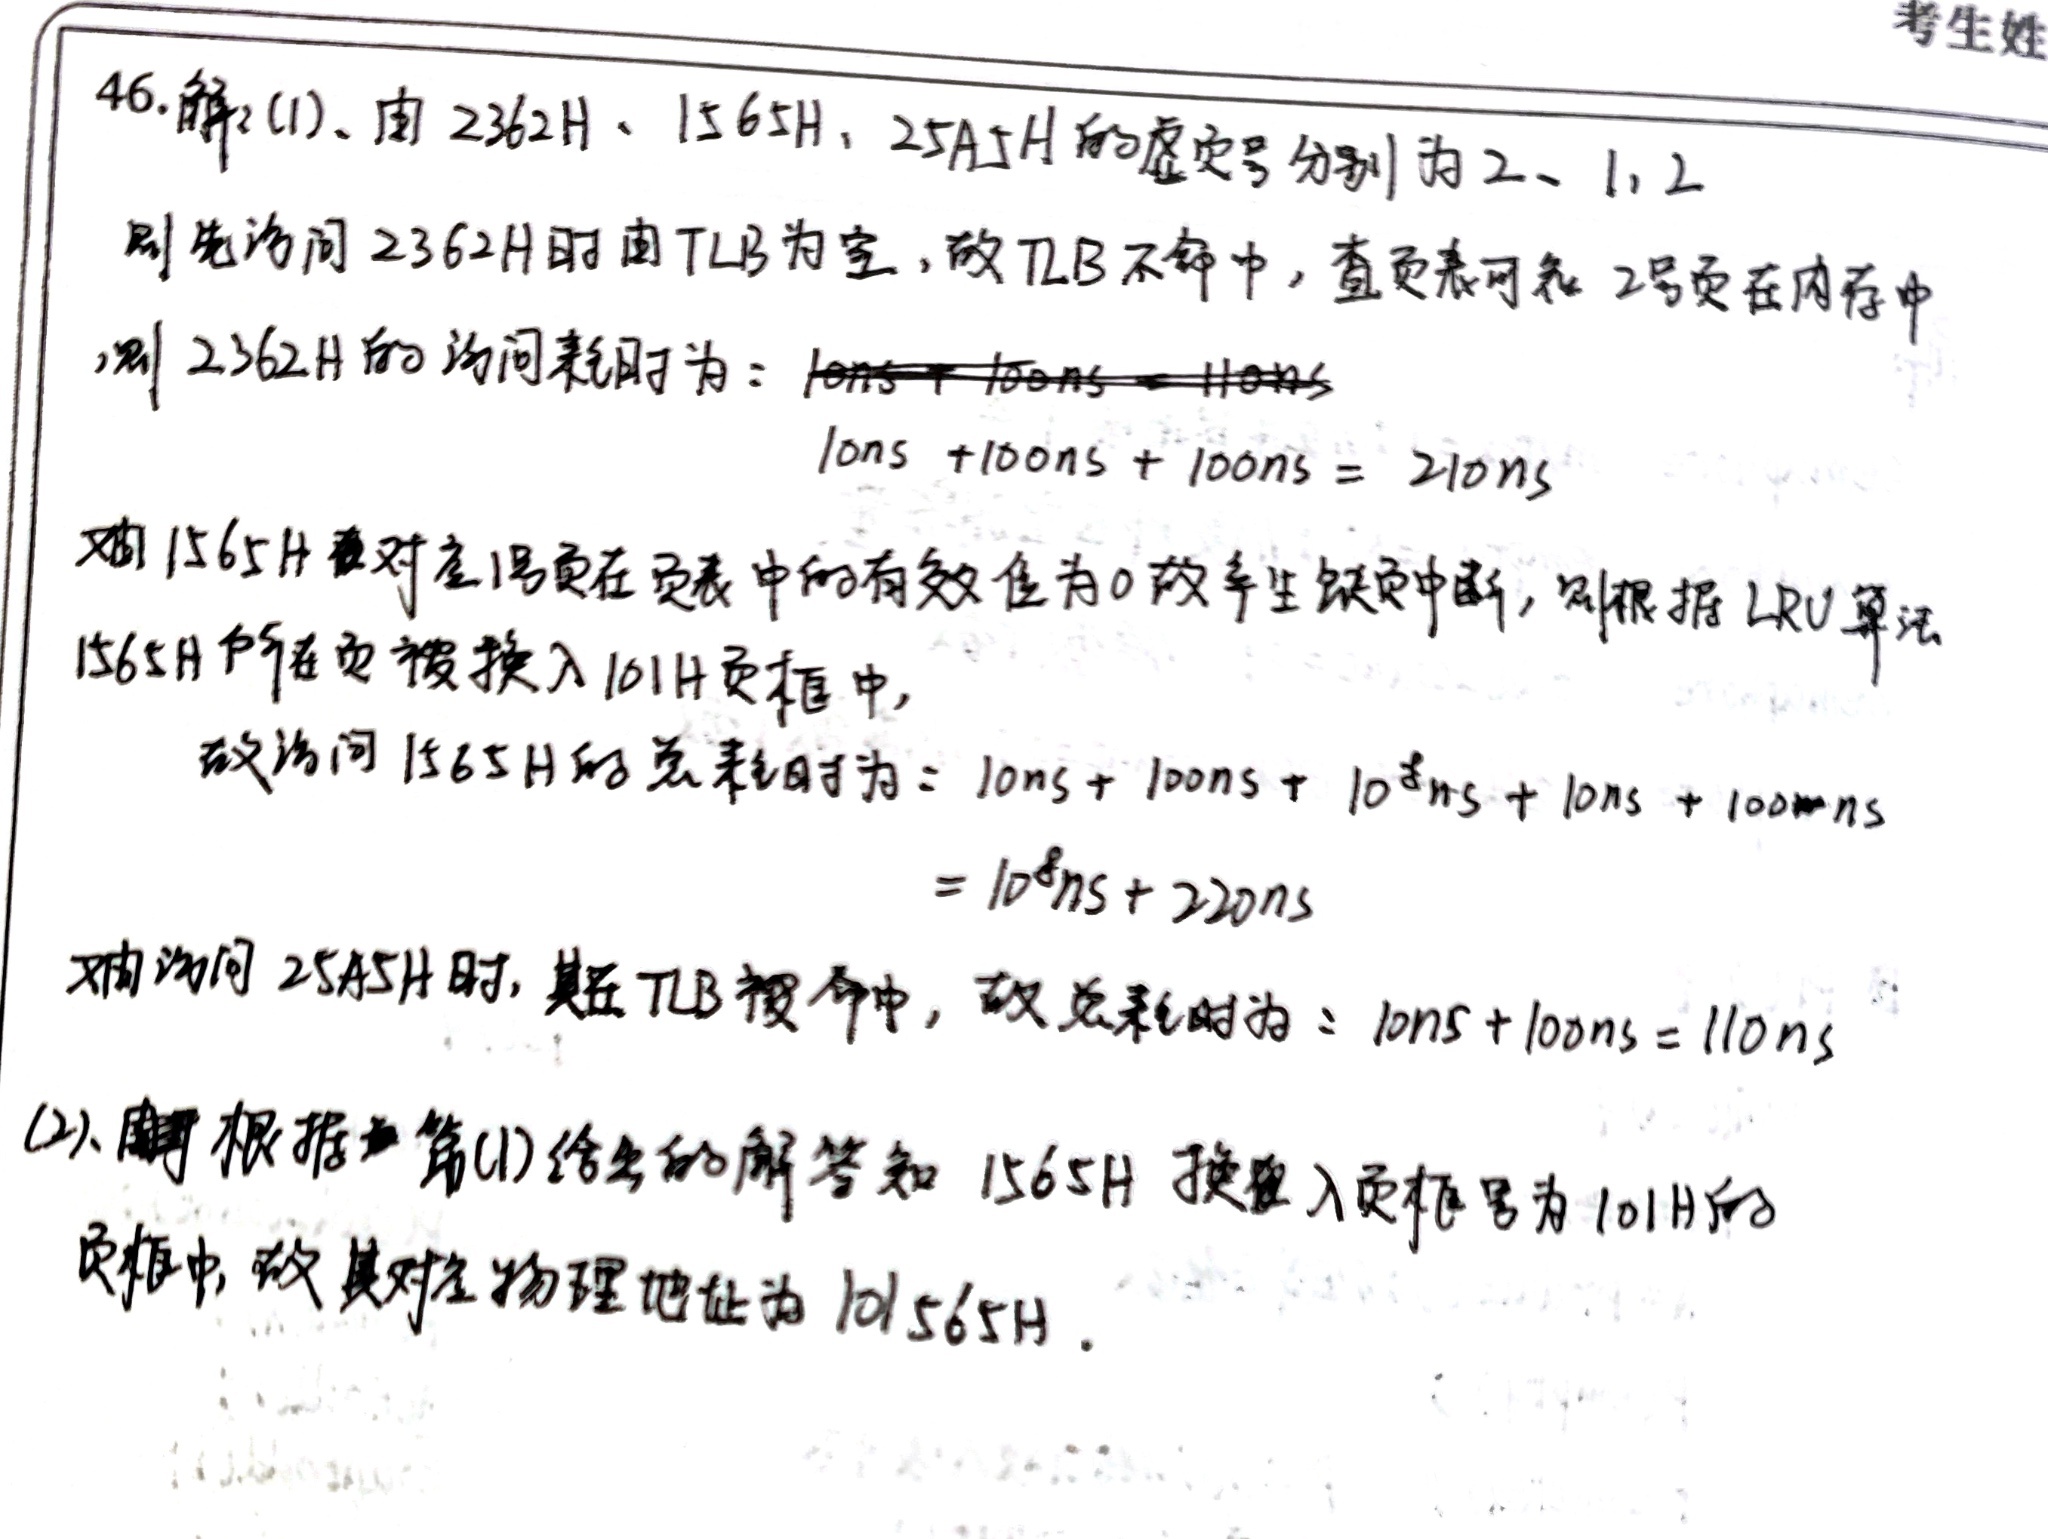 考生姓
46.解:(1)、由 2362H、1565H、25A5H的虚页号分别为2、1、2
则先访问2362H时由TLB为空,故TLB不命中,查页表可知 2号页在内存中
,则 2362H的访问耗时为: 10ns + 100ns = 110ns
10ns +100ns + 100ns = 210ns
对1565H 对应1号页在页表中的有效位为0故产生缺页中断,则根据LRU算法
1565H所在页被换入101H页框中,
故访问1565H的总耗时为: 10ns + 100ns + 10⁸ns + 10ns + 100ns
= 10⁸ns + 220ns
访问 25A5H时,其在TLB被命中,故总耗时为: 10ns + 100ns = 110ns
(2)、根据 第(1)给出的解答知 1565H 换入页框号为101H的
页框中,故其对应物理地址为 101565H.